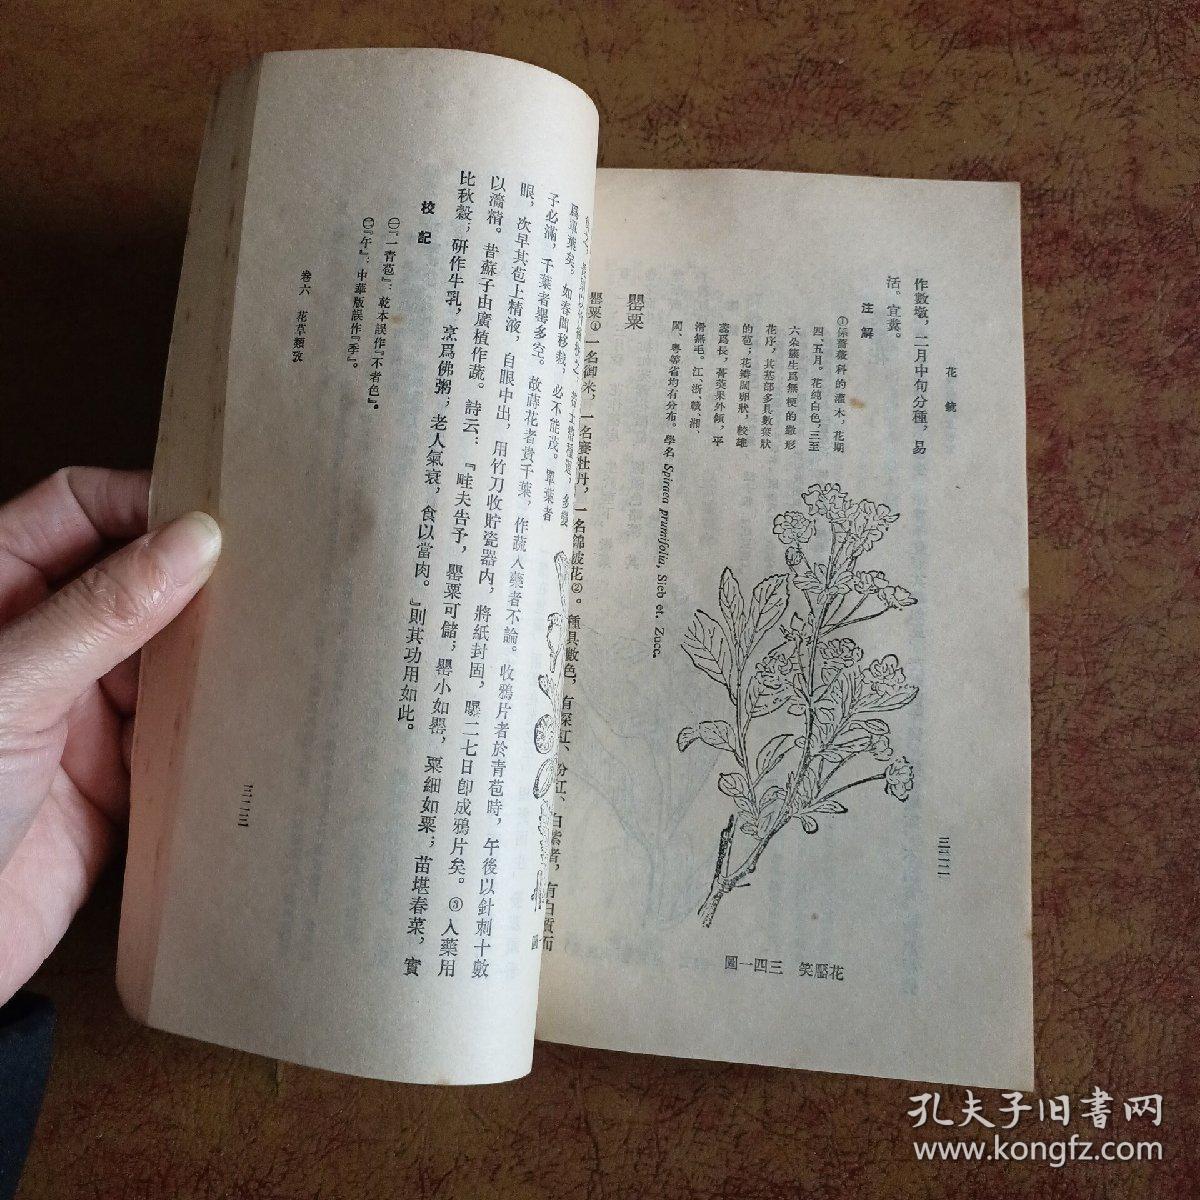 花鏡
三二二
作數墩，二月中旬分種，易
活。宜糞。
注解
①係薔薇科的灌木，花期
四、五月。花純白色，三至
六朵簇生爲無梗的繖形
花序，其基部多具數葉狀
的苞；花瓣闊卵狀，較雄
蕊爲長，蓇葖果外傾，平
滑無毛。江、浙、贛、湘、
閩、粵等省均有分布。學名 Spiraea prunifolia, Sieb et. Zucc.
圖一四三 笑靨花
罌粟
罌粟①一名御米，一名賽牡丹，一名錦被花②。種具數色，有深紅、粉紅、白紫者，有白質而
爲單葉矣。如春間移栽，必不能茂。單葉者
子必滿，千葉者罌多空。故蒔花者貴千葉，作蔬入藥者不論。收鴉片者於青苞時，午後以針刺十數
眼，次早其苞上精液，自眼中出，用竹刀收貯瓷器內，將紙封固，曝二七日卽成鴉片矣。③入藥用
以濇精。昔蘇子由廣植作蔬。詩云：『畦夫告予，罌粟可儲；罌小如罌，粟細如粟；苗堪春菜，實
比秋穀；研作牛乳，烹爲佛粥；老人氣衰，食以當肉。』則其功用如此。
校記
㊀『一青苞』：乾本誤作『不者色』。
㊁『午』：中華版誤作『季』。
卷六 花草類攷
三二三
孔夫子旧書网
www.kongfz.com